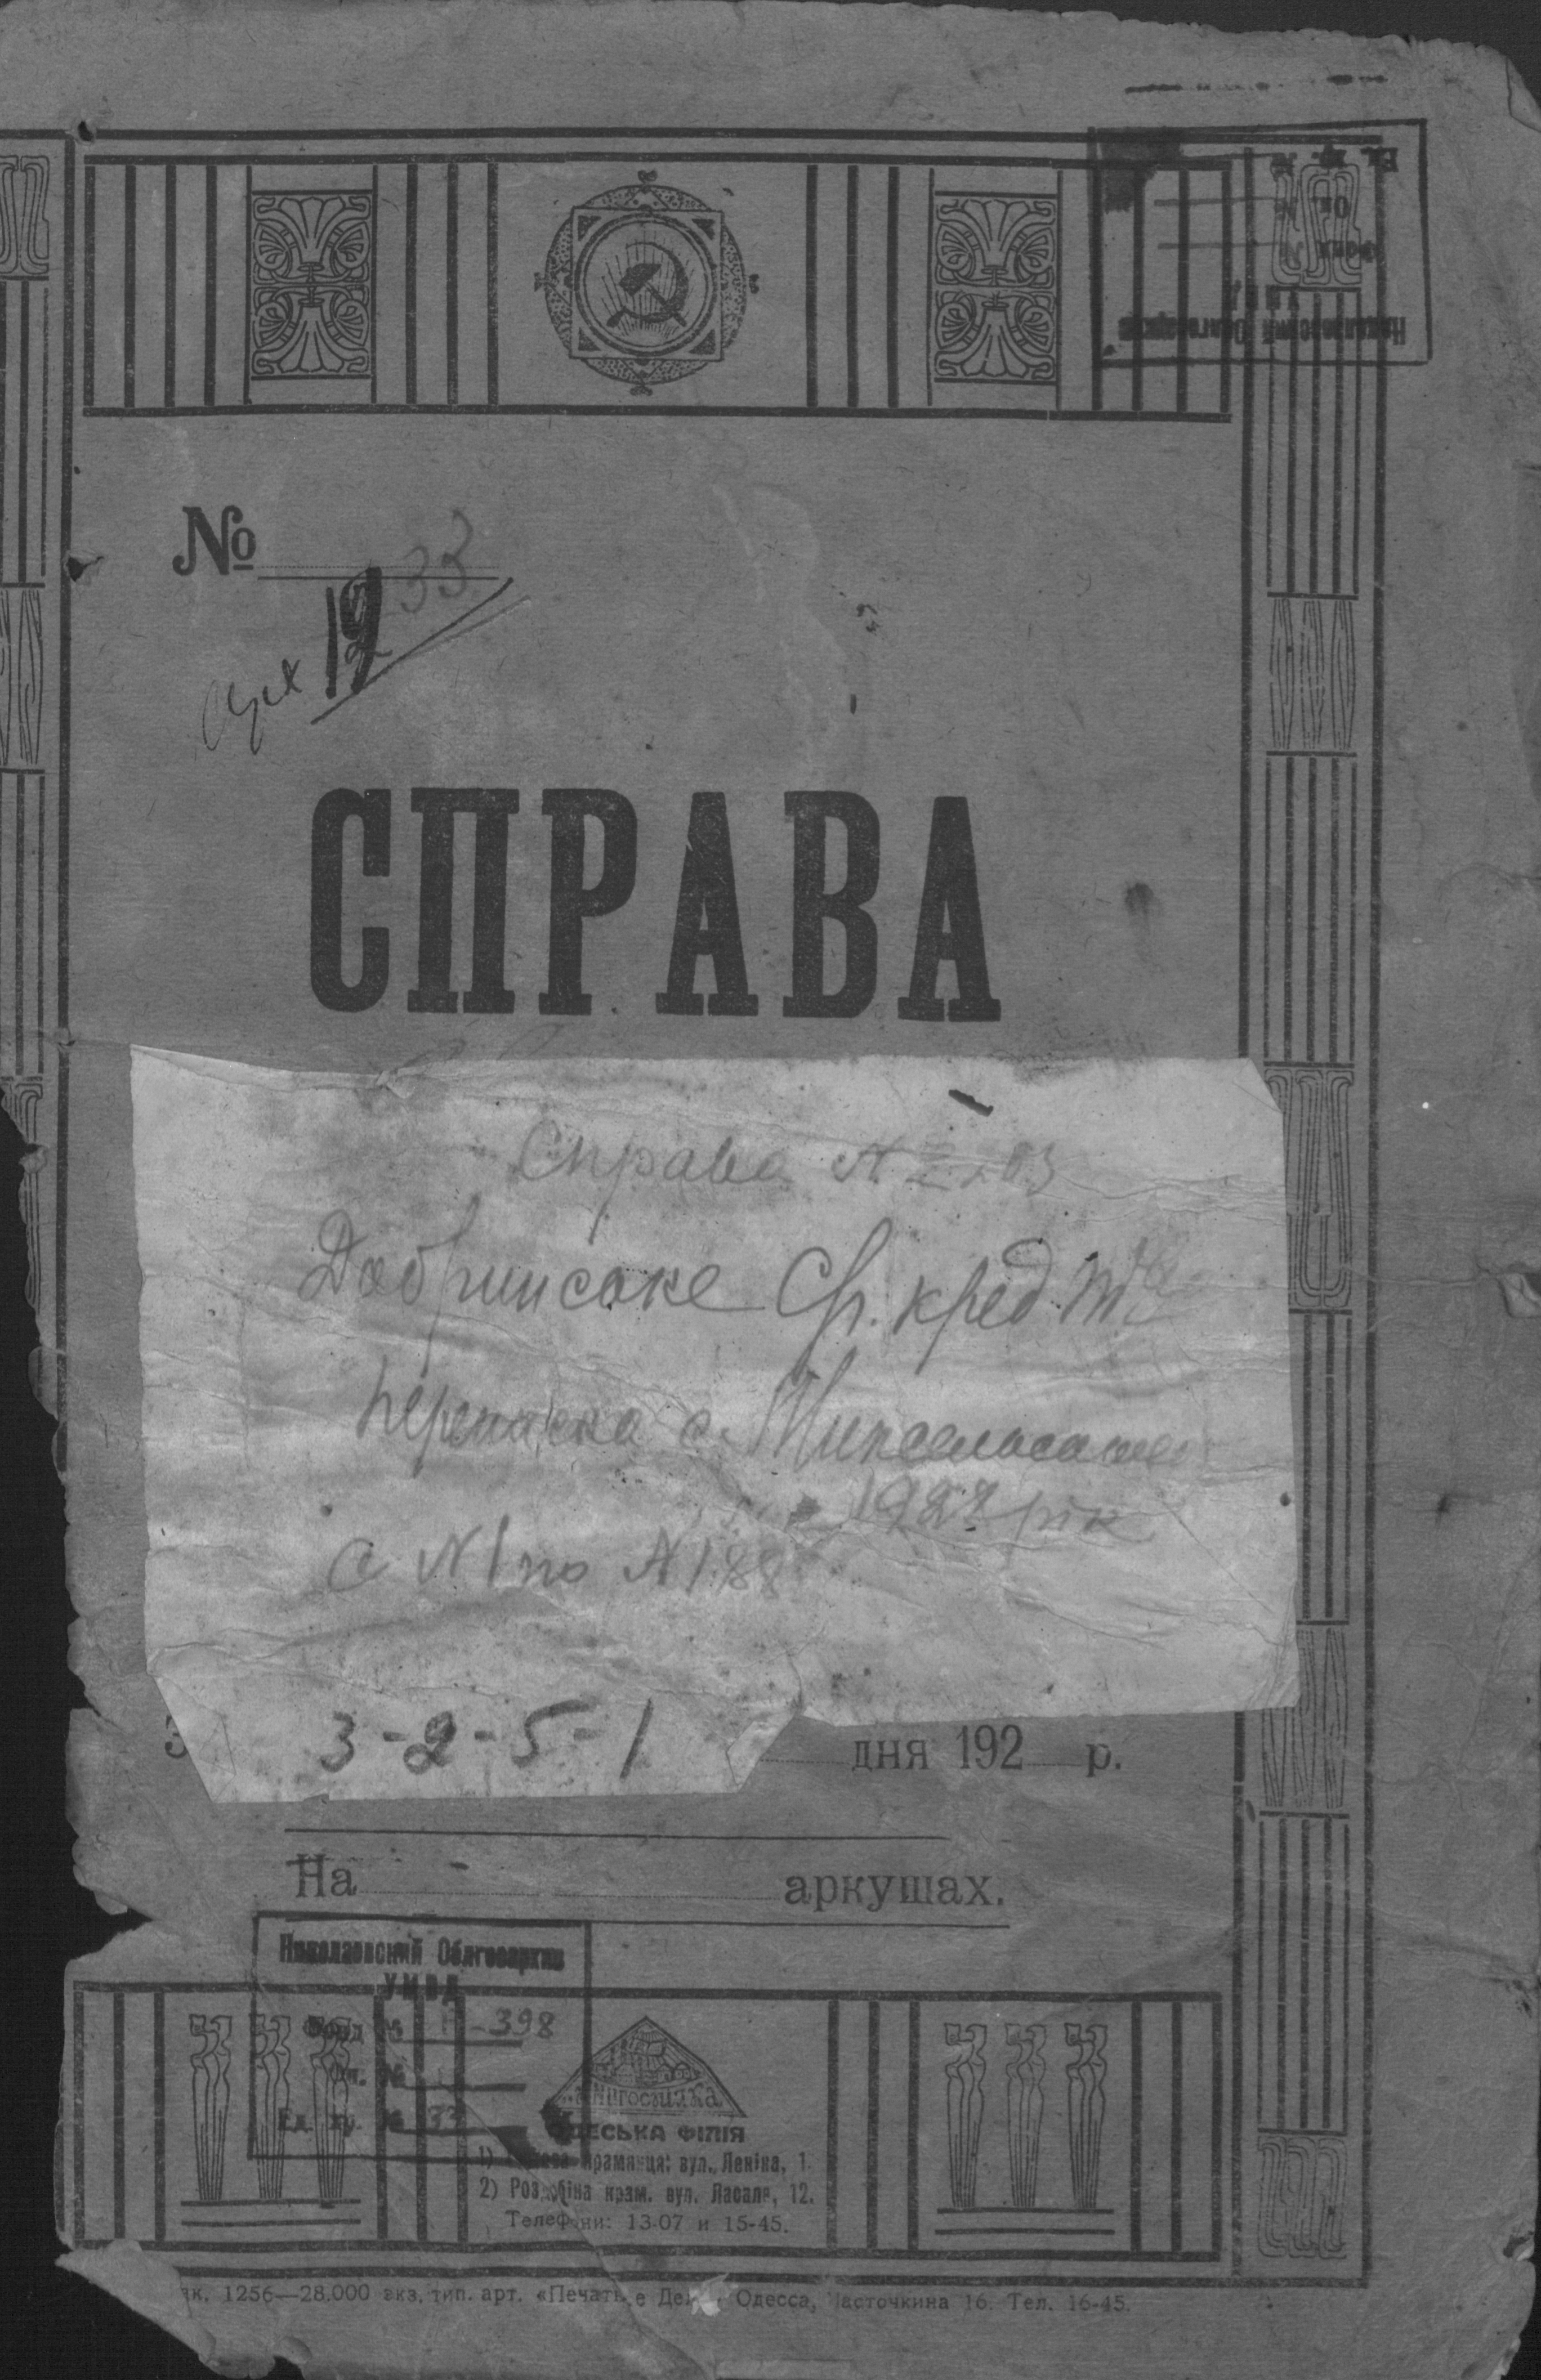 Николаевский Облгосархив
УМВД
Фонд №
Оп. №
Ед. хр. №
№
33
12
СПРАВА
Справа №
Добринське Ср. кред. т-во
переписка с
1927 рік
с №1 по №188
3-2-5-1
дня 192 р.
На аркушах.
Николаевский Облгосархив
УМВД
Фонд № -398
Оп. №
Ед. хр. № 33
ОДЕСЬКА ФІЛІЯ
1) крамниця: вул. Леніна, 1.
2) Роздрібна крам. вул. Ласаля, 12.
Телефони: 13-07 и 15-45.
Зак. 1256—28.000 экз. тип. арт. «Печатное Дело» Одесса, Ласточкина 16. Тел. 16-45.